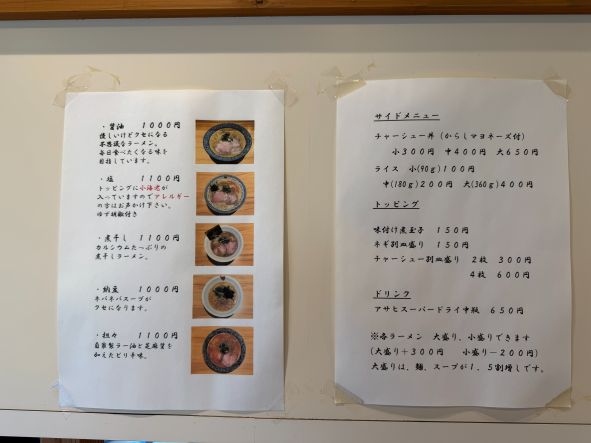 ・醤油 1000円
優しいけどクセになる
不思議なラーメン。
毎日食べたくなる味を
目指しています。
・塩 1100円
トッピングに小海老が
入っていますのでアレルギー
の方はお声かけ下さい。
ゆず胡椒付き
・煮干し 1100円
カルシウムたっぷりの
煮干しラーメン。
・納豆 1000円
ネバネバスープが
クセになります。
・担々 1100円
自家製ラー油と芝麻醤を
加えたピリ辛味。
サイドメニュー
チャーシュー丼(からしマヨネーズ付)
小300円 中400円 大650円
ライス 小(90g)100円
中(180g)200円 大(360g)400円
トッピング
味付け煮玉子 150円
ネギ別皿盛り 150円
チャーシュー別皿盛り 2枚 300円
4枚 600円
ドリンク
アサヒスーパードライ中瓶 650円
※各ラーメン 大盛り、小盛りできます
(大盛り+300円 小盛り-200円)
大盛りは、麺、スープが1.5割増しです。